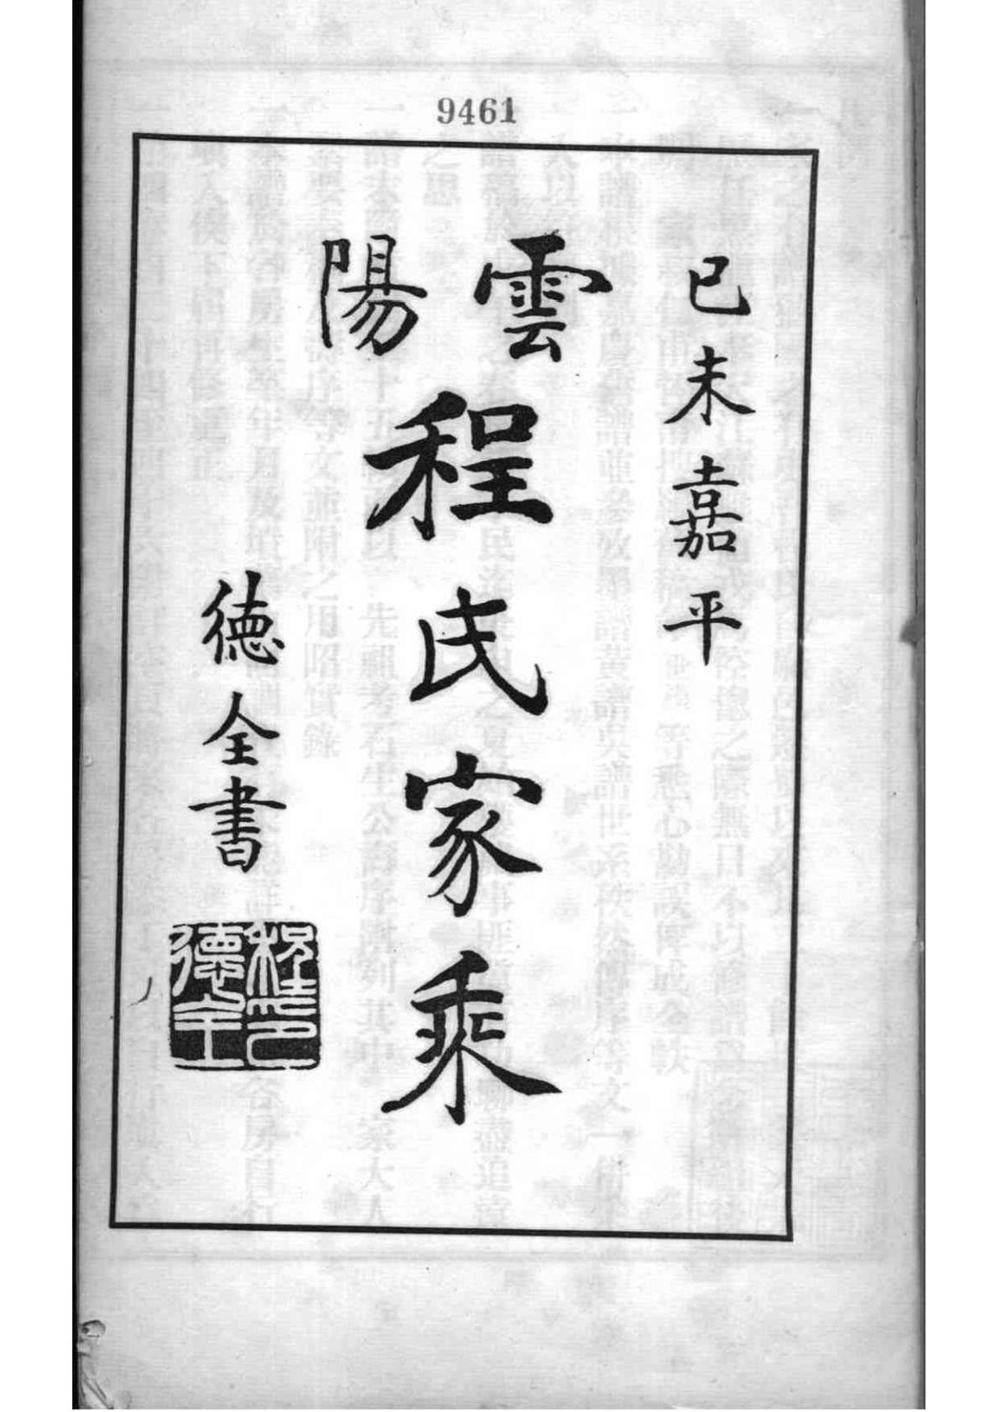 9461
己未嘉平
雲陽
程氏家乘
德全書
程印德全